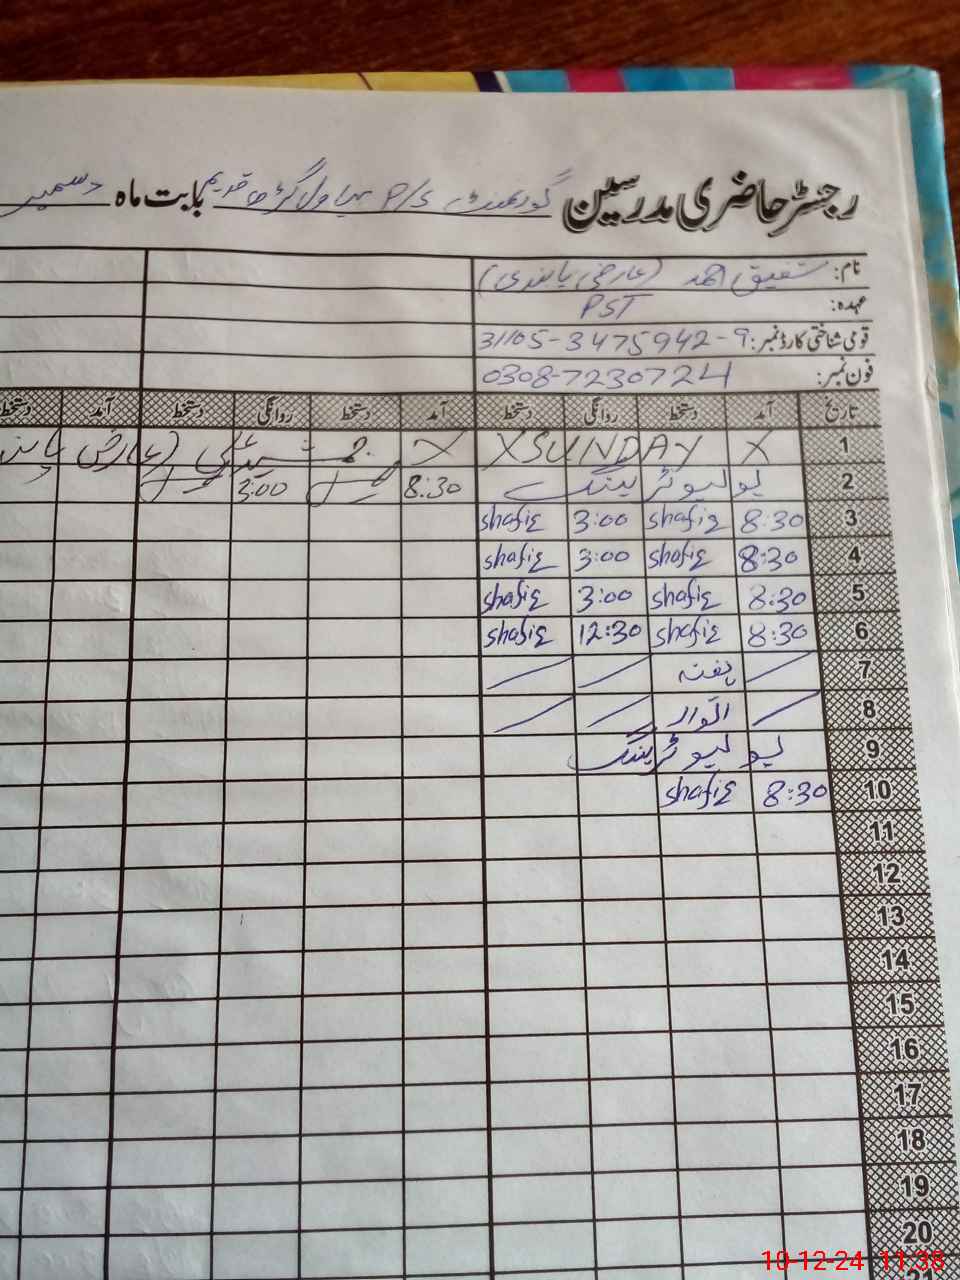 رجسٹر حاضری مدرسین گورنمنٹ P/S بہاول گڑھ قدیم بابت ماہ دسمبر
نام: شفیق احمد (عارضی پابندی)
عہدہ: PST
قومی شناختی کارڈ نمبر: 31105-3475942-9
فون نمبر: 0308-7230724
تاریخ آمد دستخط روانگی دستخط آمد دستخط روانگی دستخط آمد دستخط
1 X SUNDAY X X جمشید علی (عارضی
2 پولیو ٹریننگ 8:30 3:00
3 8:30 shafiq 3:00 shafiq
4 8:30 shafiq 3:00 shafiq
5 8:30 shafiq 3:00 shafiq
6 8:30 shafiq 12:30 shafiq
7 ہفتہ
8 اتوار
9 پولیو ٹریننگ
10 8:30 shafiq
11
12
13
14
15
16
17
18
19
20
21
10-12-24 11:38